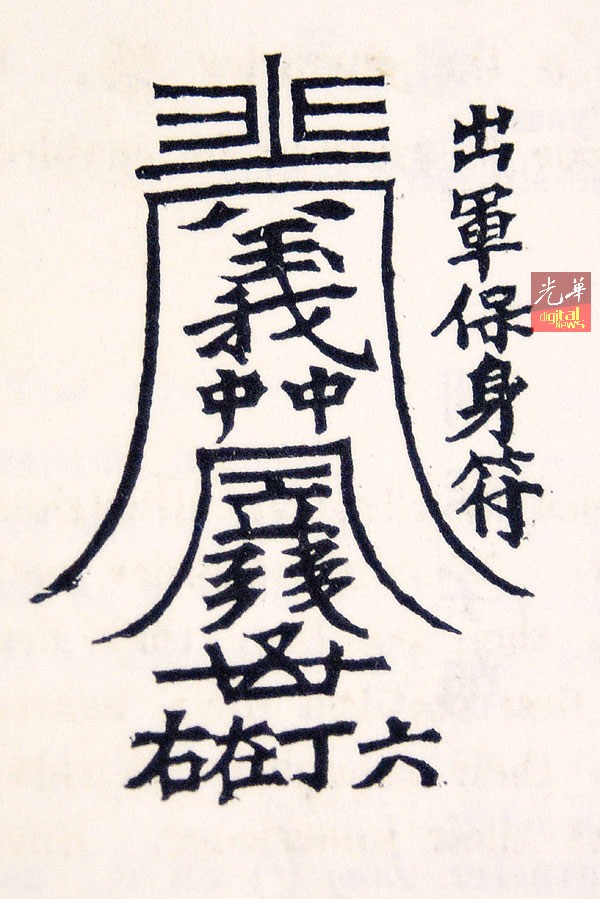 出軍保身符
義
中中
六丁在右
光華
digital
News